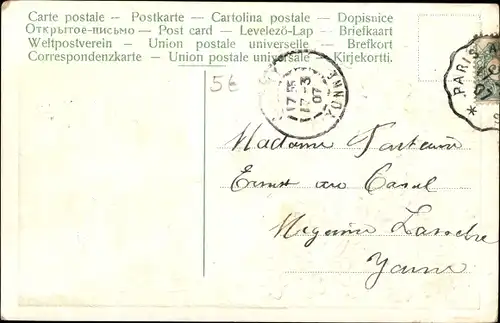 Carte postale — Postkarte — Cartolina postale — Dopisnice
Открытое-письмо — Post card — Levelező-Lap — Briefkaart
Weltpostverein — Union postale universelle — Brefkort
Correspondenzkarte — Union postale universale — Kirjekortti.
56
YONNE
17 35
17 -3
07
PARIS
Madame
Ernest au Casal
Yonne